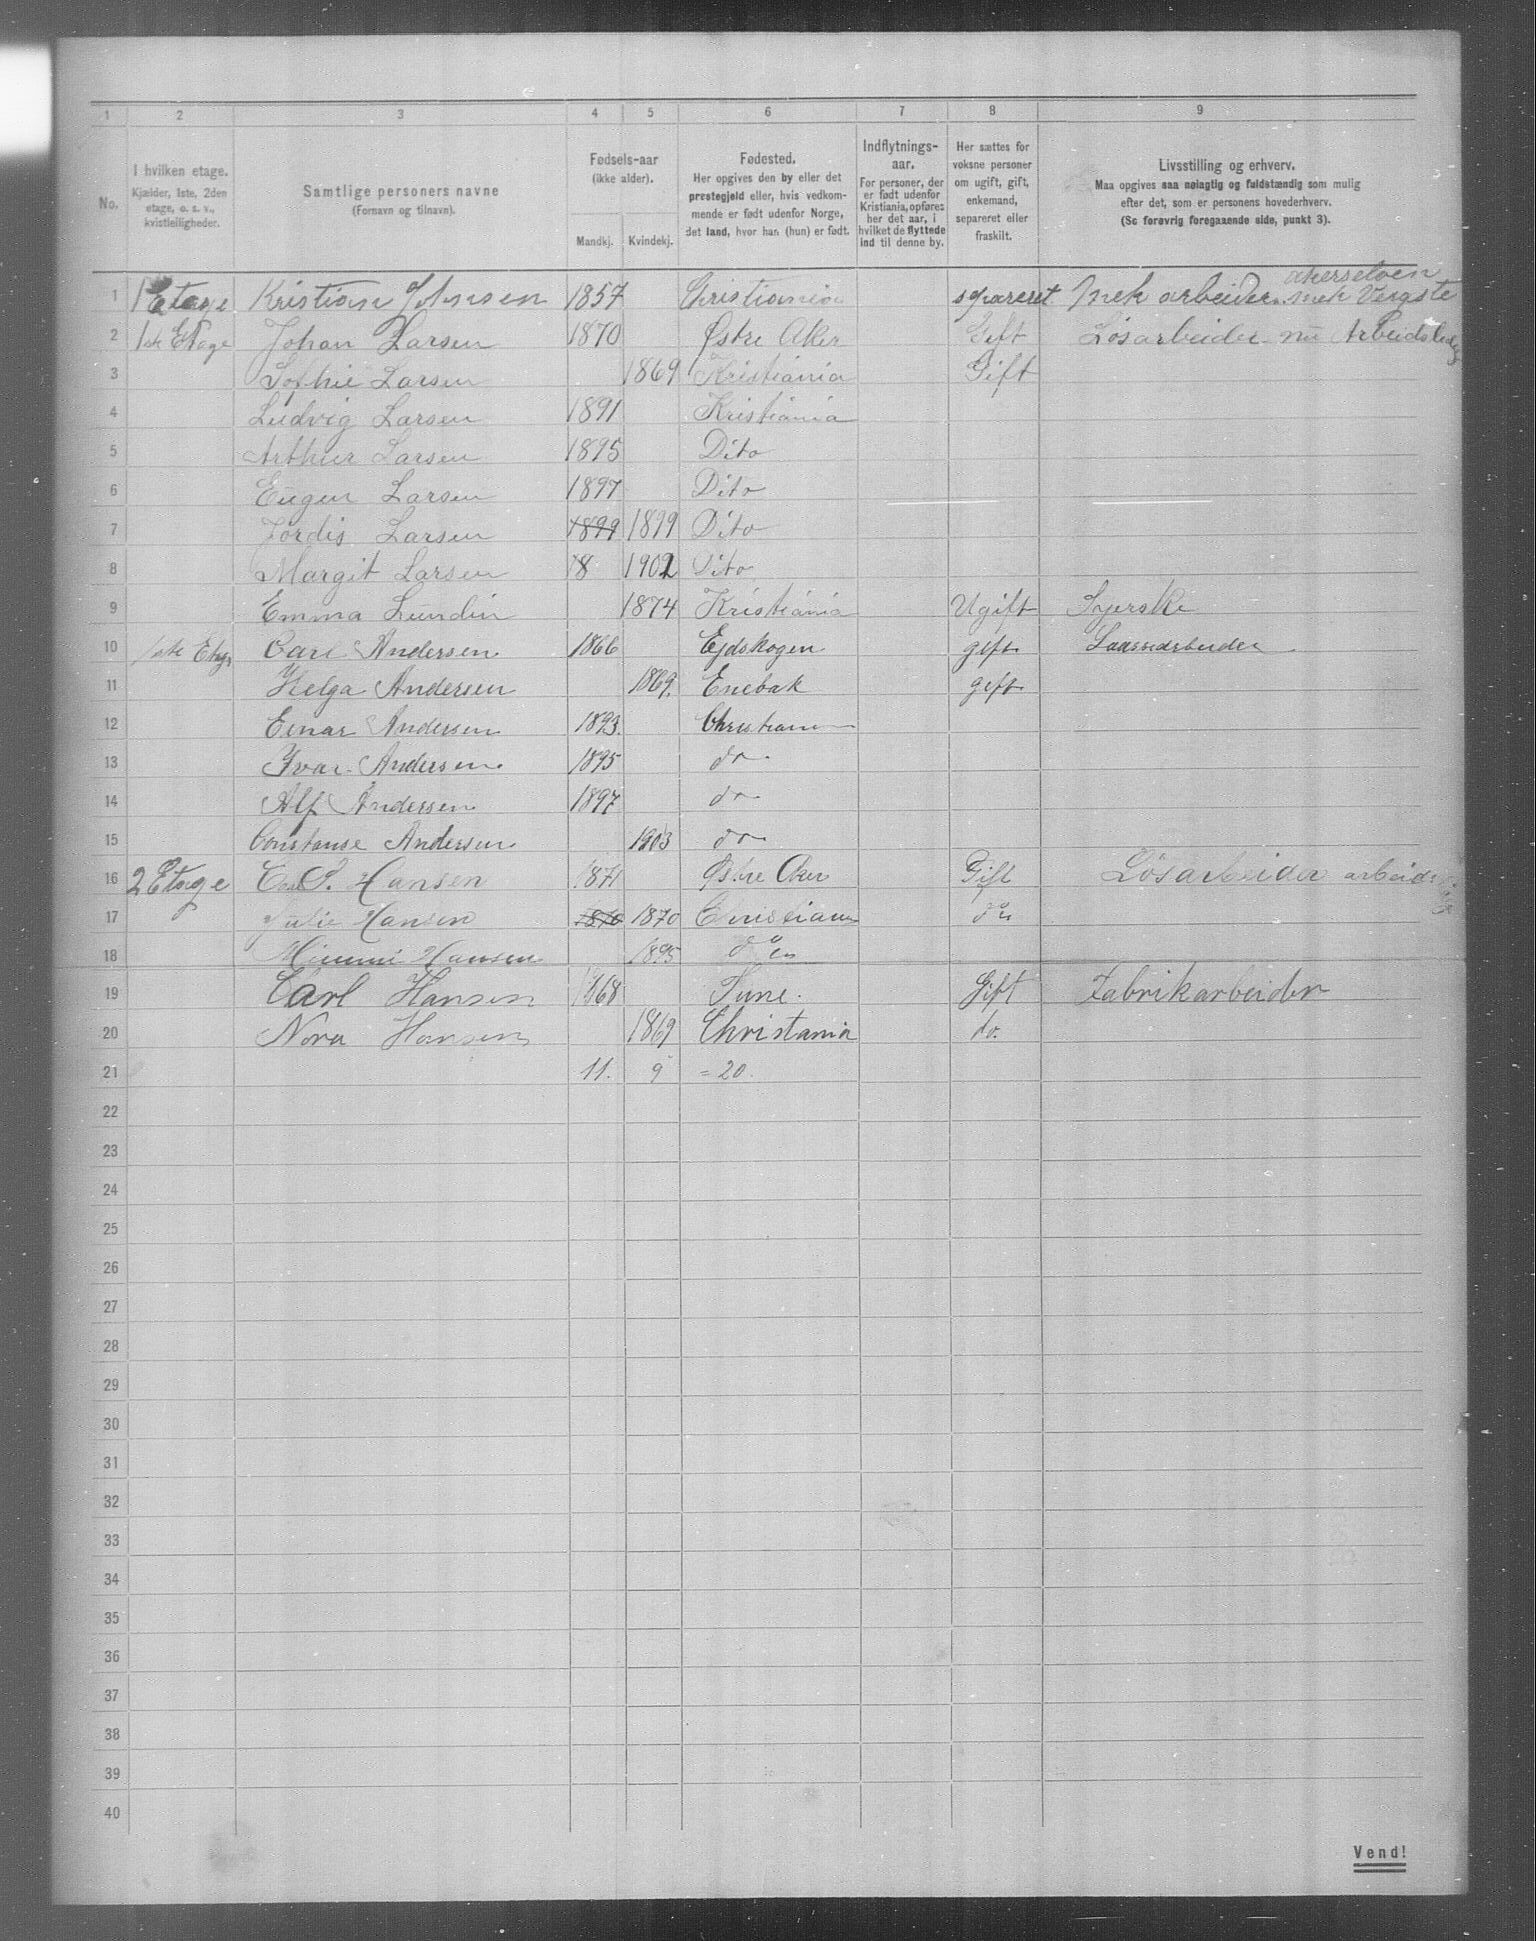 1 2 3 4 5 6 7 8 9
No.
I hvilken etage.
Kjælder, 1ste, 2den
etage, o. s. v.,
kvistleiligheder.
Samtlige personers navne
(Fornavn og tilnavn).
Fødsels-aar
(ikke alder).
Mandkj. Kvindekj.
Fødested.
Her opgives den by eller det
prestegjeld eller, hvis vedkom-
mende er født udenfor Norge,
det land, hvor han (hun) er født.
Indflytnings-
aar.
For personer, der
er født udenfor
Kristiania, opføres
her det aar, i
hvilket de flyttede
ind til denne by.
Her sættes for
voksne personer
om ugift, gift,
enkemand,
separeret eller
fraskilt.
Livsstilling og erhverv.
Maa opgives saa nøiagtig og fuldstændig som mulig
efter det, som er personens hovederhverv.
(Se forøvrig foregaaende side, punkt 3).
akerselven
1 1 Etage Kristian Johnsen 1857 Christiania separeret Mek arbeider mek Vergste
2 1ste Etage Johan Larsen 1870 Østre Aker Gift Løsarbeider nu Arbeidsledig
3 Sophie Larsen 1869 Kristiania Gift
4 Ludvig Larsen 1891 Kristiania
5 Arthur Larsen 1895 Dito
6 Eugen Larsen 1897 Dito
7 Jordis Larsen 1899 1899 Dito
8 Margit Larsen 18 1902 Dito
9 Emma Lundin 1874 Kristiania Ugift Syerske
10 1ste Etage Carl Andersen 1866 Ejdskogen gift
11 Helga Andersen 1869. Enebak gift
12 Einar Andersen 1893. Christiania
13 Ivar Andersen. 1895 do
14 Alf Andersen 1897 do
15 Constanse Andersen 1903 do
16 2 Etage Hansen 1871 Østre Aker Gift Løsarbeider
17 Julie Hansen 1870 1870 Christiania do
18 Mimmi Hansen 1895 do
19 Carl Hansen 1868 Gift Fabrikarbeider
20 Nora Hansen 1869 Christania do.
21 11. 9 = 20.
22
23
24
25
26
27
28
29
30
31
32
33
34
35
36
37
38
39
40
Vend!